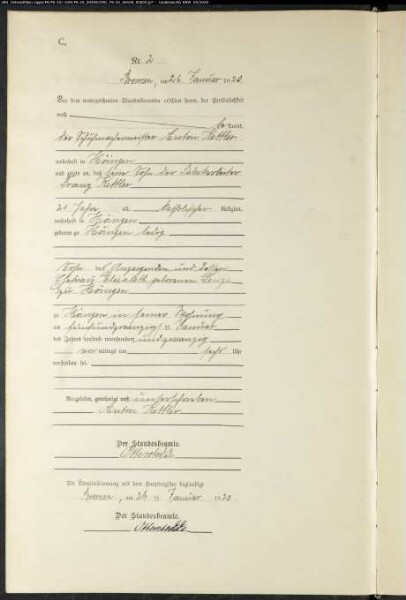 C.
Nr. 2
Bremen, am 26. Januar 1920.
Vor dem unterzeichneten Standesbeamten erschien heute, der Persönlichkeit
nach
be kannt,
der Schuhmachermeister Anton Kettler
wohnhaft in Höingen
und zeigte an, daß sein Sohn der Fabrikarbeiter
Franz Kettler
Jahre a katholischer Religion,
wohnhaft in Höingen
geboren zu Höingen ledig
Sohn des Anzeigenden und dessen
Ehefrau Elisabeth geborenen
zu Höingen
zu Höingen in seiner Wohnung
am fünfundzwanzigsten Januar
des Jahres tausend neunhundert undzwanzig
vor mittags um sechs Uhr
verstorben sei.
Vorgelesen, genehmigt und unterschrieben
Anton Kettler
Der Standesbeamte.
Die Übereinstimmung mit dem Hauptregister beglaubigt
Bremen, am 26 ten Januar 1920.
Der Standesbeamte.